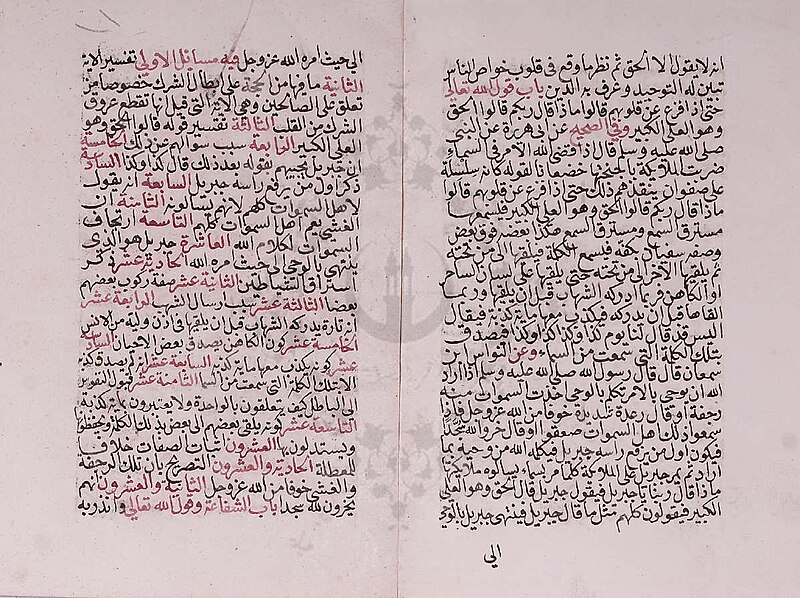 انه لا يقول الا الحق ثم نظر ما وقع في قلوب خواص الناس
تبين له التوحيد وعرف به الدين باب قول الله تعالى
حتى اذا فزع عن قلوبهم قالوا ماذا قال ربكم قالوا الحق
وهو العلي الكبير وفي الصحيح عن ابي هريرة عن النبي
صلى الله عليه وسلم قال اذا قضى الله الامر في السماء
ضربت الملايكة باجنحتها خضعانا لقوله كانه سلسلة
على صفوان ينفذهم ذلك حتى اذا فزع عن قلوبهم قالوا
ماذا قال ربكم قالوا الحق وهو العلي الكبير فيسمعها
مسترق السمع ومسترق السمع هكذا بعضه فوق بعض
وصفه سفيان بكفه فيسمع الكلمة فيلقيها الى من تحته
ثم يلقيها الآخر الى من تحته حتى يلقيها على لسان الساحر
او الكاهن فربما ادركه الشهاب قبل ان يلقيها وربما
القاها قبل ان يدركه فيكذب معها ماية كذبة فيقال
اليس قد قال لنا يوم كذا وكذا كذا وكذا فيصدق
بتلك الكلمة التي سمعت من السماء وعن النواس ابن
سمعان قال قال رسول الله صلى الله عليه وسلم اذا اراد
الله ان يوحي بالامر تكلم بالوحي اخذت السموات منه
رجفة او قال رعدة شديدة خوفا من الله عز وجل فاذا
سمعوا ذلك اهل السموات صعقوا او قال خروا لله سجدا
فيكون اول من يرفع راسه جبريل فيكلمه الله من وحيه بما
اراد ثم يمر جبريل على الملايكة كلما مر بسماء يسالوه ملايكتها
ماذا قال ربنا يا جبريل فيقول جبريل قال الحق وهو العلي
الكبير فيقولون كلهم مثل ما قال جبريل فينتهي جبريل بالوحي
الى
الى حيث امره الله عز وجل فيه مسائل الاولى تفسير الاية
الثانية ما فيها من الحجة على ابطال الشرك خصوصا من
تعلق على الصالحين وهو الاية التي قيل انها تقطع عروق
الشرك من القلب الثالثة تفسير قوله قالوا الحق وهو
العلي الكبير الرابعة سبب سوالهم عن ذلك الخامسة
ان جبريل يجيبهم بقوله بعد ذلك قال كذا وكذا السادسة
ذكر اول من يرفع راسه جبريل السابعة انه يقول
لاهل السموات كلهم لانهم يسالونه الثامنة ان
الغشي يعم اهل السموات كلهم التاسعة ارتجاف
السموات لكلام الله العاشرة جبريل هو الذي
ينتهي بالوحي الى حيث امره الله الحادية عشر ذكر
استراق الشياطين الثانية عشر صفة ركوب بعضهم
بعضا الثالثة عشر سبب ارسال الشهب الرابعة عشر
انه تارة يدركه الشهاب قبل ان يلقيها في اذن وليه من الانس
الخامسة عشر كون الكاهن يصدق بعض الاحيان السادسة
عشر كونه يكذب معها ماية كذبة السابعة عشر انه لم يصدق كذبه
الا بتلك الكلمة التي سمعت من السما الثامنة عشر قبول النفوس
الى الباطل كيف يتعلقون بالواحدة ولا يعتبرون بماية كذبة
التاسعة عشر كونه يلقي بعضهم الى بعض تلك الكلمة ويحفظونها
ويستدلون بها العشرون اثبات الصفات خلافا
للمعطلة الحادية والعشرون التصريح بان تلك الرجفة
والغشي خوفا من الله عز وجل الثانية والعشرون انهم
يخرون لله سجدا باب الشفاعة وقول الله تعالى وانذر به